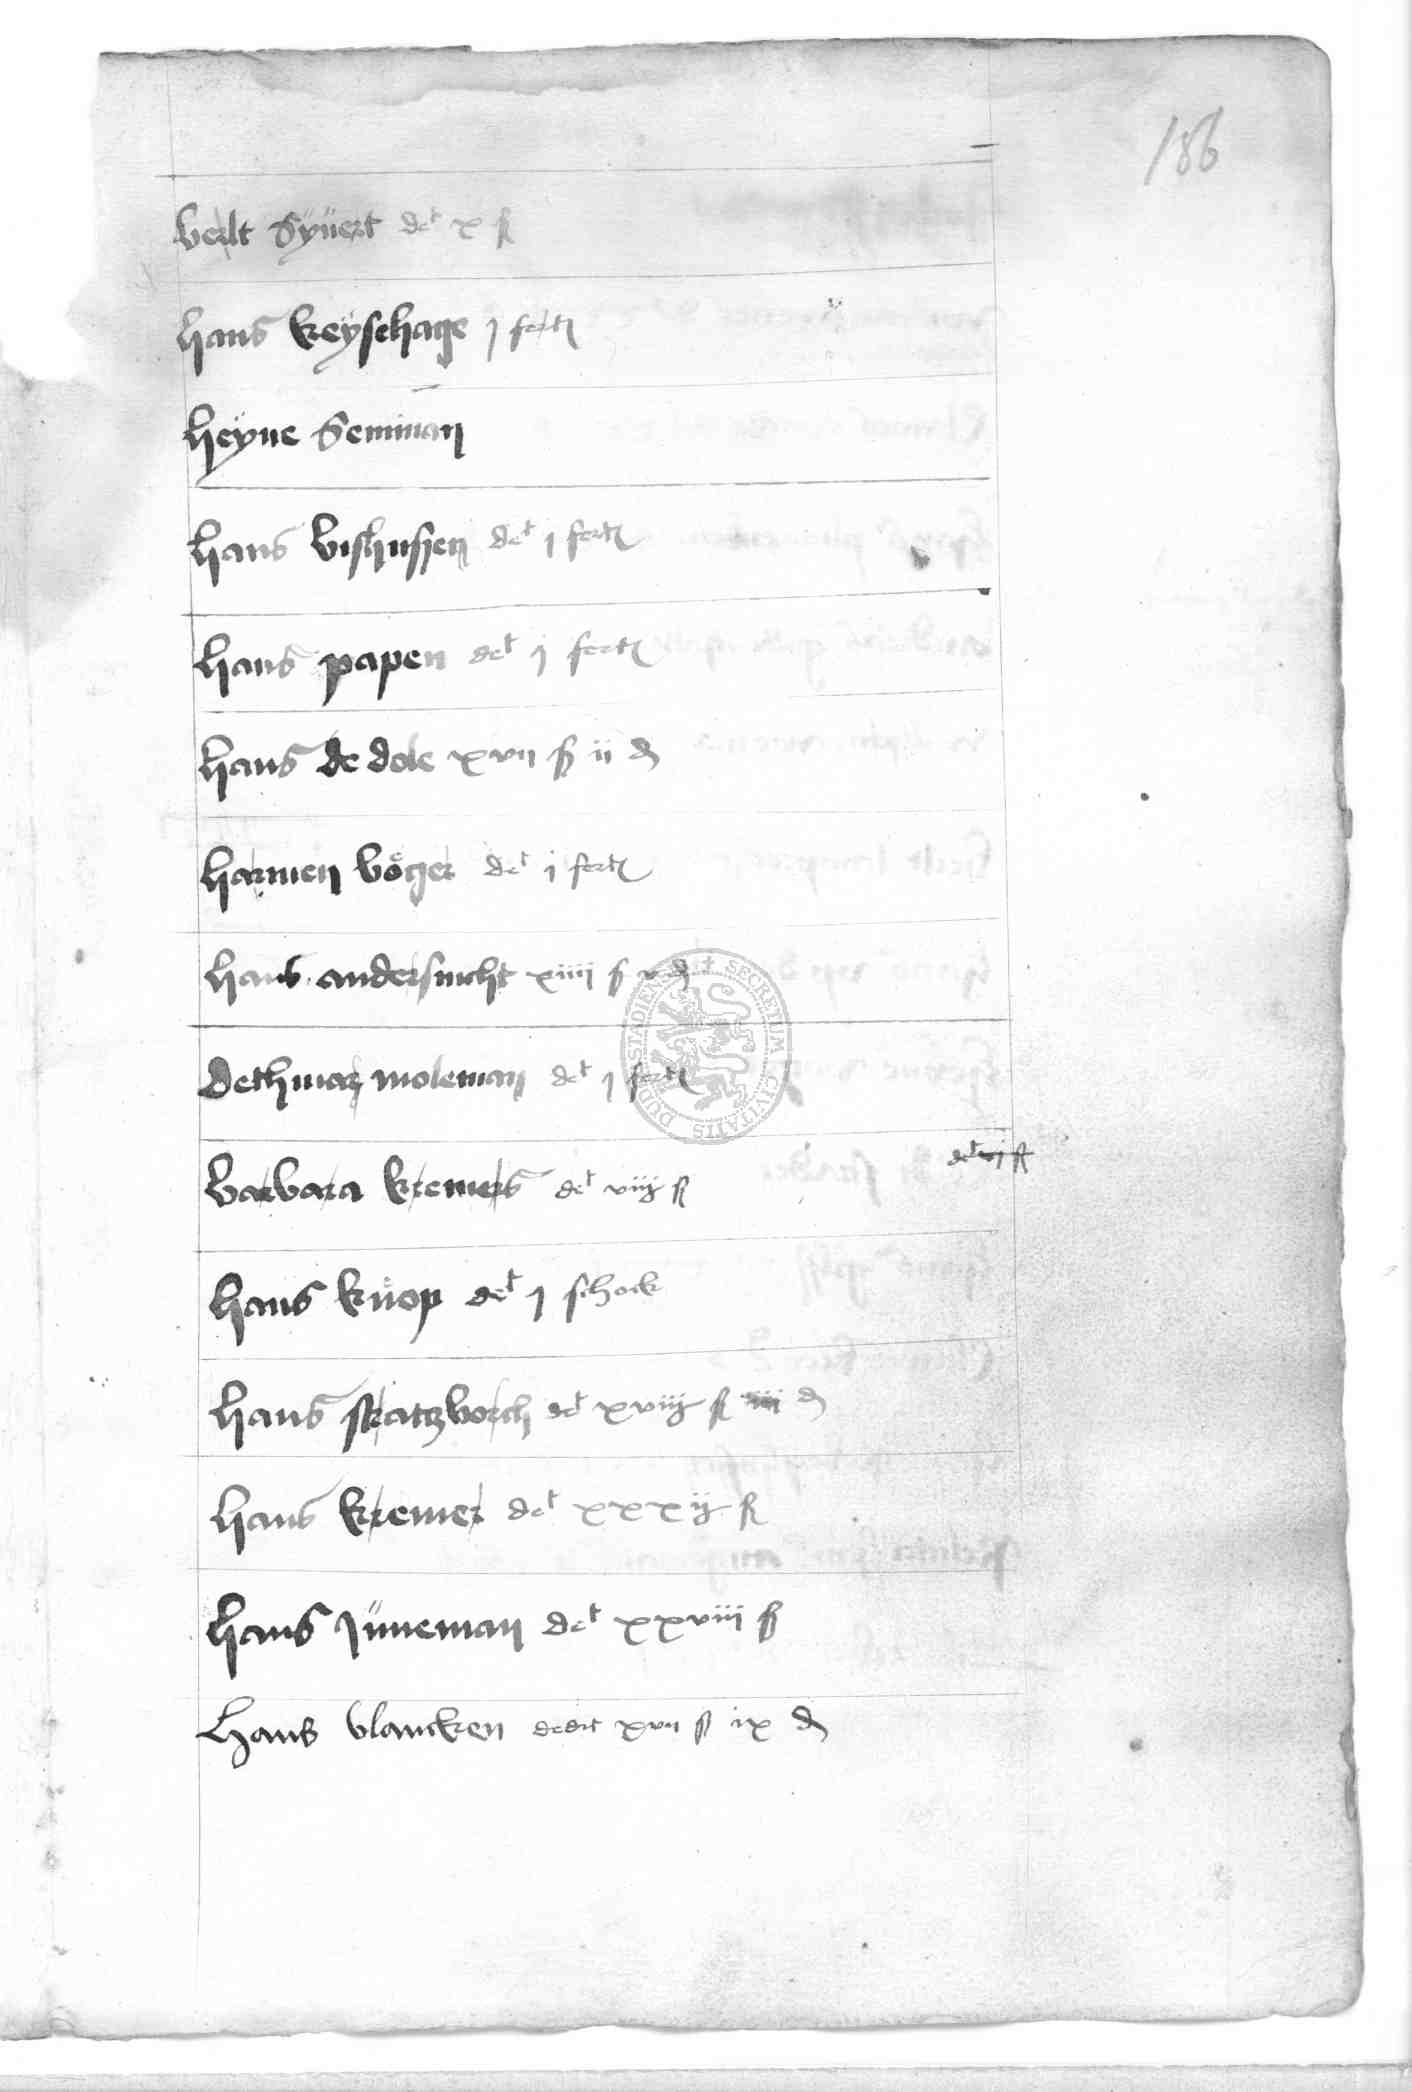 186
Berlt Sÿuert det x ß
hans keÿsehage j fert
heÿne Seminan
hans vishussen det j fert
hans papen det j fert
hans de dole xvii ß ii d
harmen vöger det j fert
hans andersnicht xiiii ß v d
dethmar moleman det j fert
det vj ß
Barbara kremers det viij ß
hans knop det j schock
hans skatzborch det xviij ß iiii d
hans kremer det xxxij ß
hans Juneman det xxviii ß
Hans blancken dedit xvii ß ix d
SECRETUM CIVITATIS DUDERSTADIENSIS